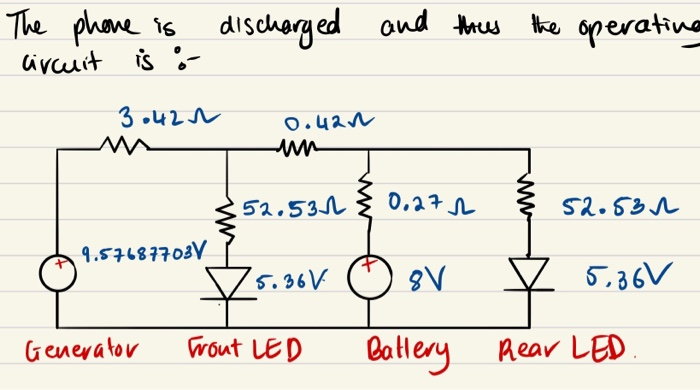 The phone is discharged and thus the operating
circuit is :-
3.42Ω 0.42Ω
52.53Ω 0.27Ω 52.53Ω
9.57687703V 5.36V 8V 5.36V
Generator Front LED Battery Rear LED.